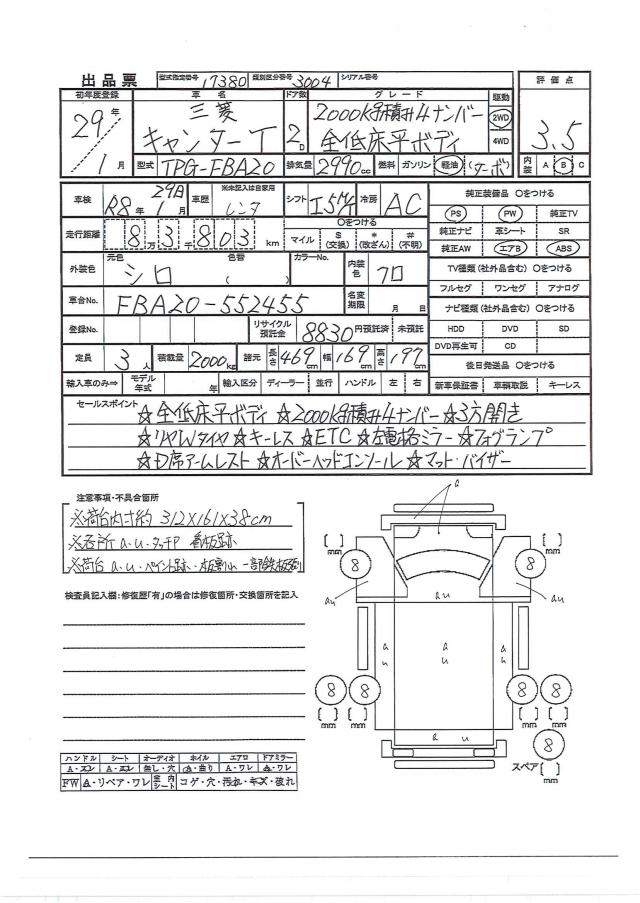 出品票
型式指定番号 17380 類別区分番号 3004 シリアル番号
初年度登録 車名 ドア数 グレード 駆動 評価点
29年 三菱 2000kg積み4ナンバー 2WD 3.5
1月 キャンターT 2D 全低床平ボディ 4WD
型式 TPG-FBA20 排気量 2990cc 燃料 ガソリン 軽油 (ターボ) 内装 A B C
車検 R8年 1月 29日 車歴 ※未記入は自家用 レンタ シフト I5M/T 冷房 AC 純正装備品 〇をつける
PS PW 純正TV
走行距離 8万3千803km 〇をつける
マイル $(交換) *(改ざん) #(不明)
純正ナビ 革シート SR
純正AW エアB ABS
外装色 元色 シロ 色替 ( ) カラーNo. 内装色 クロ
TV種類(社外品含む) 〇をつける
フルセグ ワンセグ アナログ
車台No. FBA20-552455 名変期限 月 日
ナビ種類(社外品含む) 〇をつける
登録No. リサイクル預託金 8830円預託済 未預託 HDD DVD SD
DVD再生可 CD
定員 3人 積載量 2000kg 諸元 長さ 469cm 幅 169cm 高さ 197cm
後日発送品 〇をつける
輸入車のみ⇒ モデル年式 年 輸入区分 ディーラー 並行 ハンドル 左 右 新車保証書 車輌取説 キーレス
セールスポイント ☆全低床平ボディ ☆2000kg積み4ナンバー ☆3方開き
☆リヤWタイヤ ☆キーレス ☆ETC ☆左電格ミラー ☆フォグランプ
☆中席アームレスト ☆オーバーヘッドコンソール ☆マット・バイザー
注意事項・不具合箇所
※荷台内寸約 312×161×38cm
※各所 a.u.タッチP 看板跡
※荷台 a.u.ペイント跡・板割れ 一部鉄板張り
検査員記入欄:修復歴「有」の場合は修復箇所・交換箇所を記入
a
[ ] mm [ ] mm
8 8
au au
au
a u a u a u
8 8 8 8
[ ] mm [ ] mm [ ] mm [ ] mm
a
8
スペア [ ] mm
ハンドル シート オーディオ ホイル エアロ ドアミラー
A・スレ A・スレ 無し・穴 A・曲り A・ワレ A・ワレ
FW A・リペア・ワレ 室内シート コゲ・穴・汚れ・キズ・破れ